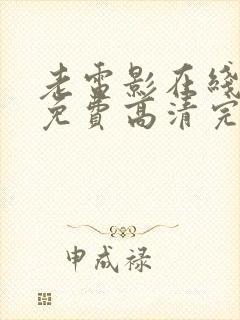 老雷影在线
免费高清完
申成禄